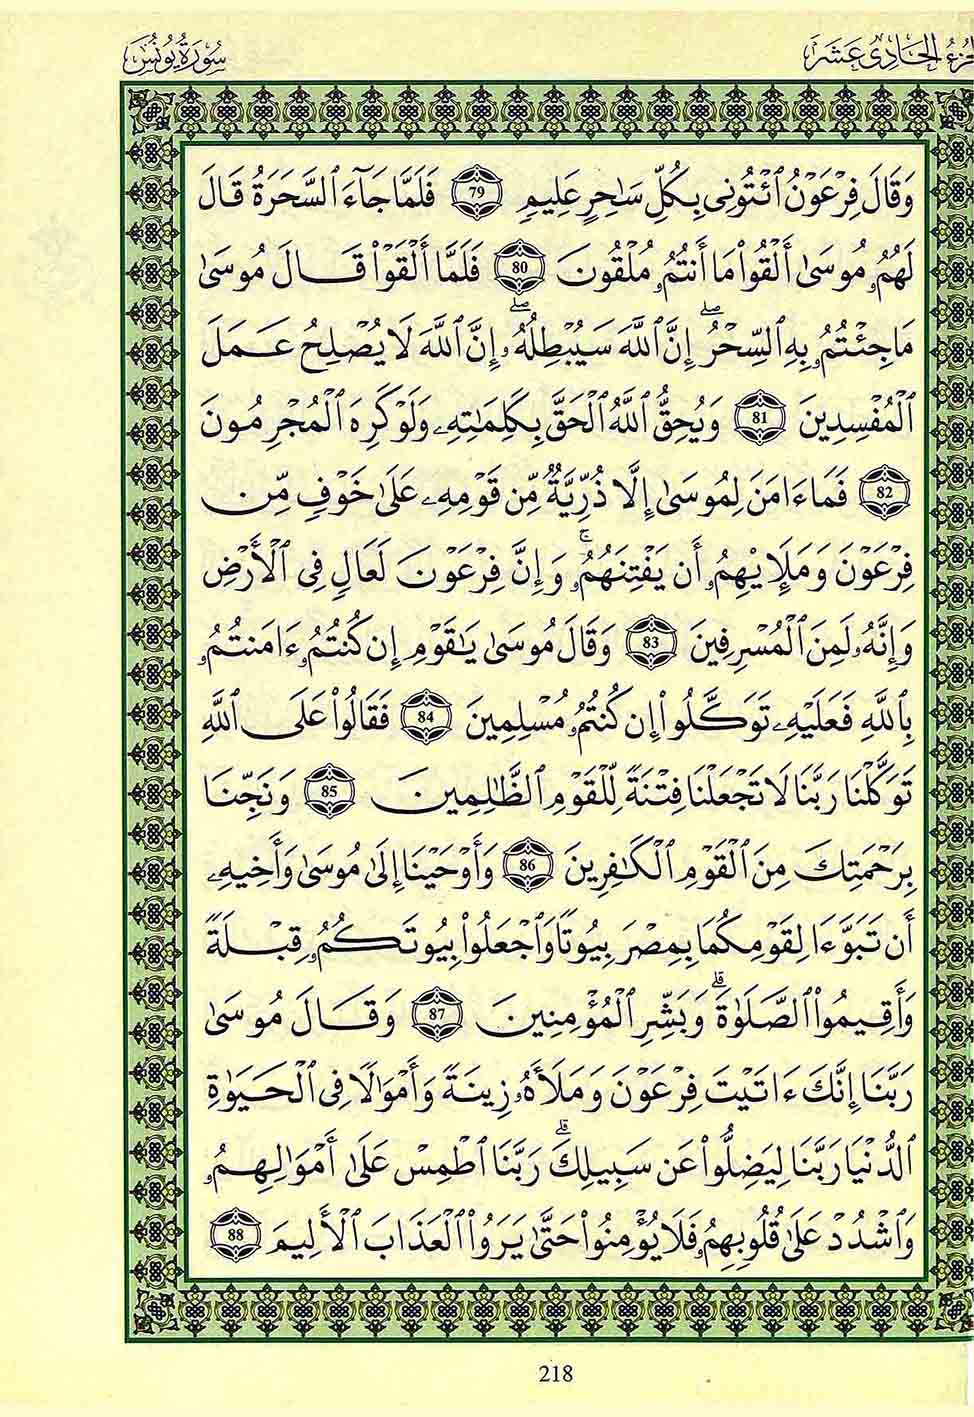 الجزء الحادى عشر
سورة يونس
وَقَالَ فِرْعَوْنُ ٱئْتُونِى بِكُلِّ سَٰحِرٍ عَلِيمٍ 79 فَلَمَّا جَآءَ ٱلسَّحَرَةُ قَالَ
لَهُمُۥ مُوسَىٰٓ أَلْقُوا۟ مَا أَنتُمُۥ مُلْقُونَ 80 فَلَمَّا أَلْقَوْا۟ قَالَ مُوسَىٰ
مَا جِئْتُمُۥ بِهِ ٱلسِّحْرُ ۖ إِنَّ ٱللَّهَ سَيُبْطِلُهُۥ ۖ إِنَّ ٱللَّهَ لَا يُصْلِحُ عَمَلَ
ٱلْمُفْسِدِينَ 81 وَيُحِقُّ ٱللَّهُ ٱلْحَقَّ بِكَلِمَٰتِهِۦ وَلَوْ كَرِهَ ٱلْمُجْرِمُونَ
82 فَمَا ءَامَنَ لِمُوسَىٰ إِلَّا ذُرِّيَّةٌ مِّن قَوْمِهِۦ عَلَىٰ خَوْفٍ مِّن
فِرْعَوْنَ وَمَلَإِي۟هِمُۥ أَن يَفْتِنَهُمُۥ ۚ وَإِنَّ فِرْعَوْنَ لَعَالٍ فِى ٱلْأَرْضِ
وَإِنَّهُۥ لَمِنَ ٱلْمُسْرِفِينَ 83 وَقَالَ مُوسَىٰ يَٰقَوْمِ إِن كُنتُمُۥ ءَامَنتُمُۥ
بِٱللَّهِ فَعَلَيْهِۦ تَوَكَّلُوا۟ إِن كُنتُمُۥ مُسْلِمِينَ 84 فَقَالُوا۟ عَلَى ٱللَّهِ
تَوَكَّلْنَا رَبَّنَا لَا تَجْعَلْنَا فِتْنَةً لِّلْقَوْمِ ٱلظَّٰلِمِينَ 85 وَنَجِّنَا
بِرَحْمَتِكَ مِنَ ٱلْقَوْمِ ٱلْكَٰفِرِينَ 86 وَأَوْحَيْنَا إِلَىٰ مُوسَىٰ وَأَخِيهِۦ
أَن تَبَوَّءَا لِقَوْمِكُمَا بِمِصْرَ بِيُوتًا وَٱجْعَلُوا۟ بِيُوتَكُمُۥ قِبْلَةً
وَأَقِيمُوا۟ ٱلصَّلَوٰةَ ۗ وَبَشِّرِ ٱلْمُؤْمِنِينَ 87 وَقَالَ مُوسَىٰ
رَبَّنَا إِنَّكَ ءَاتَيْتَ فِرْعَوْنَ وَمَلَأَهُۥ زِينَةً وَأَمْوَٰلًا فِى ٱلْحَيَوٰةِ
ٱلدُّنْيَا رَبَّنَا لِيَضِلُّوا۟ عَن سَبِيلِكَ ۗ رَبَّنَا ٱطْمِسْ عَلَىٰ أَمْوَٰلِهِمُۥ
وَٱشْدُدْ عَلَىٰ قُلُوبِهِمُۥ فَلَا يُؤْمِنُوا۟ حَتَّىٰ يَرَوُا۟ ٱلْعَذَابَ ٱلْأَلِيمَ 88
218